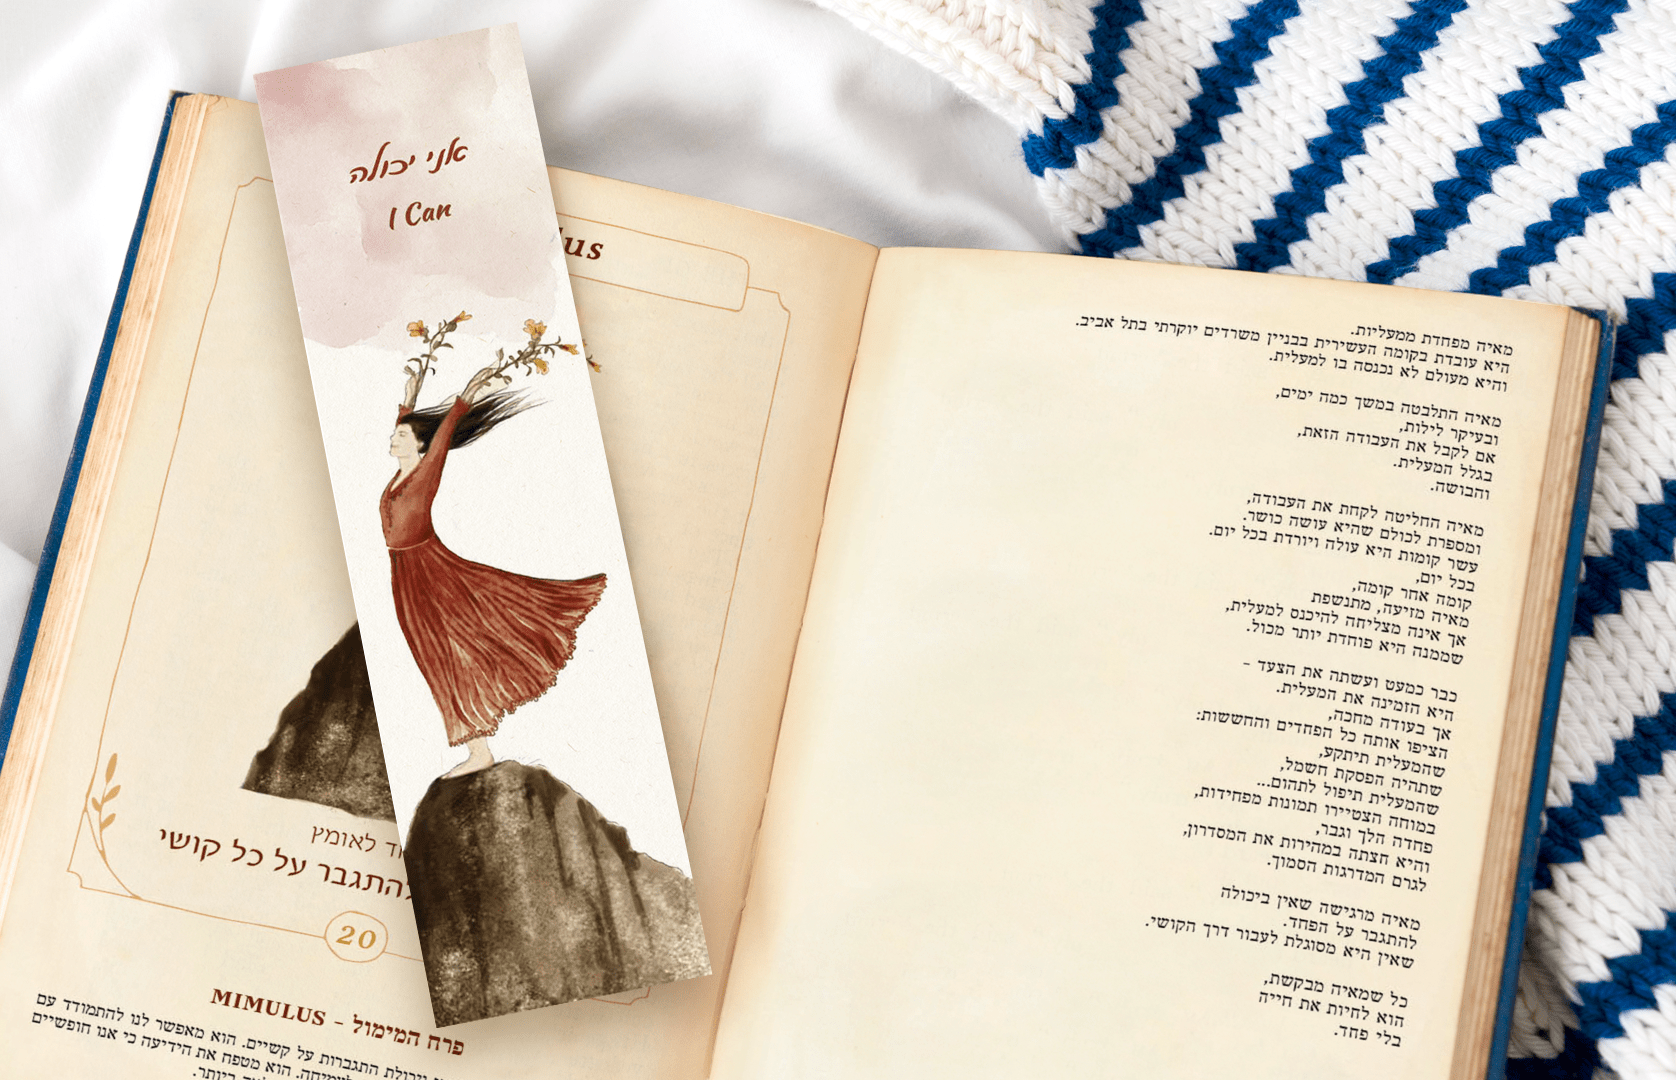 אני יכולה
I Can
lus
לאומץ
להתגבר על כל קושי
20
פרח המימול - MIMULUS
יכולת התגברות על קשיים. הוא מאפשר לנו להתמודד עם
הוא מטפח את הידיעה כי אנו חופשיים
ביותר.
מאיה מפחדת ממעליות.
היא עובדת בקומה העשירית בבניין משרדים יוקרתי בתל אביב.
והיא מעולם לא נכנסה בו למעלית.
מאיה התלבטה במשך כמה ימים,
ובעיקר לילות,
אם לקבל את העבודה הזאת,
בגלל המעלית.
והבושה.
מאיה החליטה לקחת את העבודה,
ומספרת לכולם שהיא עושה כושר.
עשר קומות היא עולה ויורדת בכל יום.
בכל יום,
קומה אחר קומה,
מאיה מזיעה, מתנשפת
אך אינה מצליחה להיכנס למעלית,
שממנה היא פוחדת יותר מכול.
כבר כמעט ועשתה את הצעד –
היא הזמינה את המעלית.
אך בעודה מחכה,
הציפו אותה כל הפחדים והחששות:
שהמעלית תיתקע,
שתהיה הפסקת חשמל,
שהמעלית תיפול לתהום...
במוחה הצטיירו תמונות מפחידות,
פחדה הלך וגבר,
והיא חצתה במהירות את המסדרון,
לגרם המדרגות הסמוך.
מאיה מרגישה שאין ביכולה
להתגבר על הפחד.
שאין היא מסוגלת לעבור דרך הקושי.
כל שמאיה מבקשת,
הוא לחיות את חייה
בלי פחד.